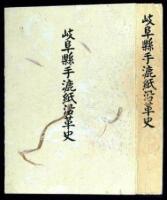 岐阜縣手漉紙沿革史
岐阜縣手漉紙沿革史